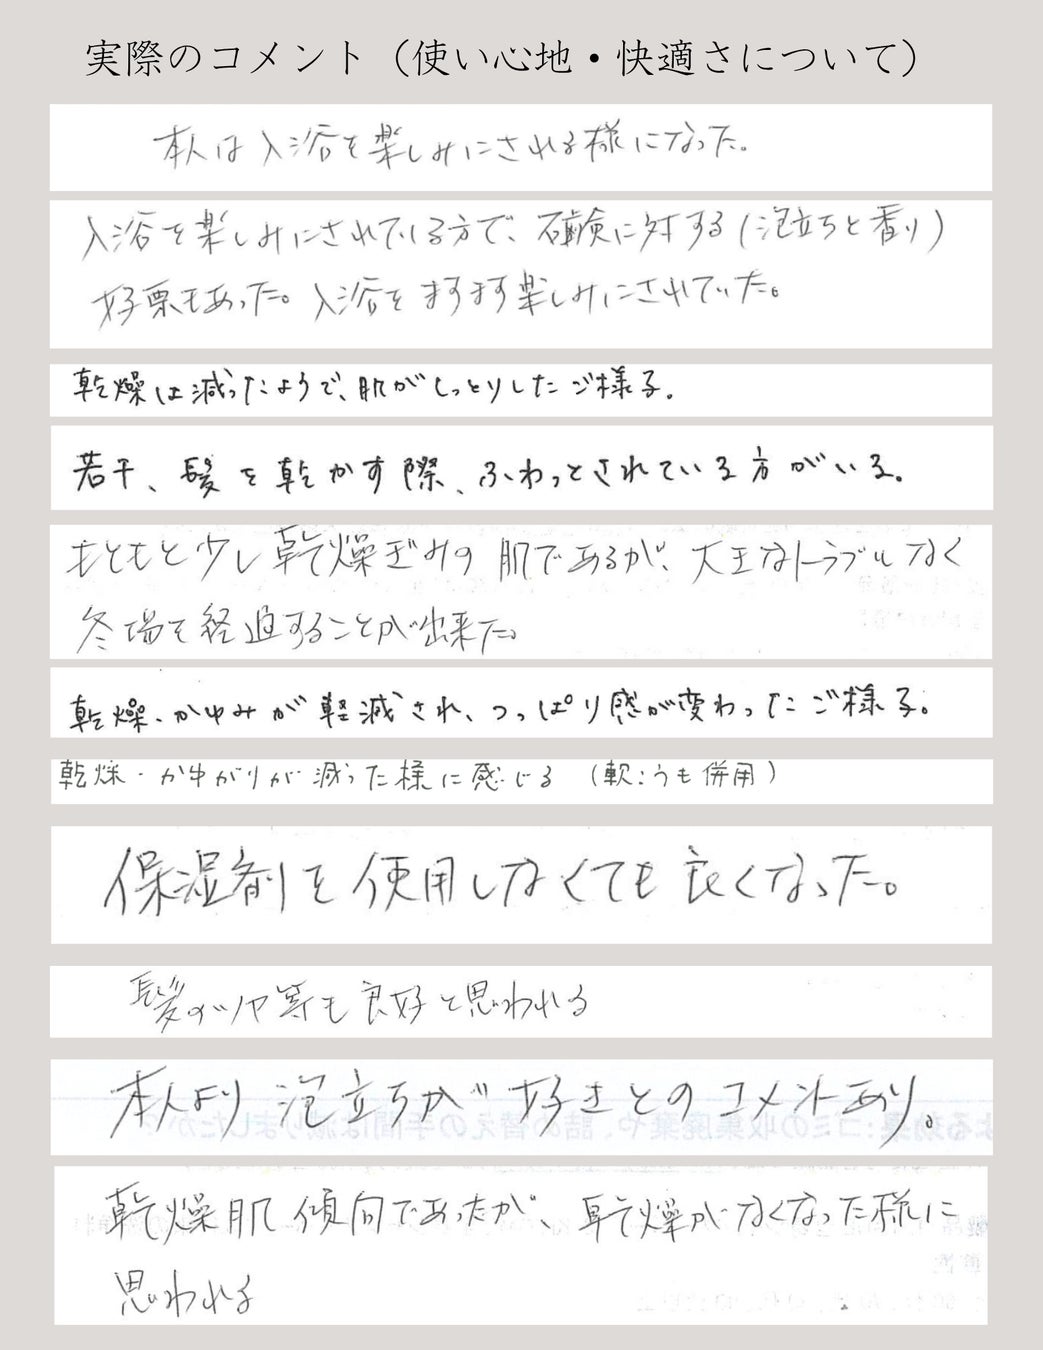 実際のコメント（使い心地・快適さについて）
本人は入浴を楽しみにされる様になった。
入浴を楽しみにされている方で、石鹸に対する（泡立ちと香り）
好票もあった。入浴をますます楽しみにされていた。
乾燥は減ったようで、肌がしっとりしたご様子。
若干、髪を乾かす際、ふわっとされている方がいる。
もともと少し乾燥ぎみの肌であるが、大きなトラブルなく
冬場を経過することが出来た。
乾燥・かゆみが軽減され、つっぱり感が変わったご様子。
乾燥・かゆがりが減った様に感じる （軟こうも併用）
保湿剤を使用しなくても良くなった。
髪のツヤ等も良好と思われる
本人より泡立ちが好きとのコメントあり。
よる効果：ゴミの収集廃棄や、詰め替えの手間は減りましたか
乾燥肌傾向であったが、乾燥がなくなった様に
思われる